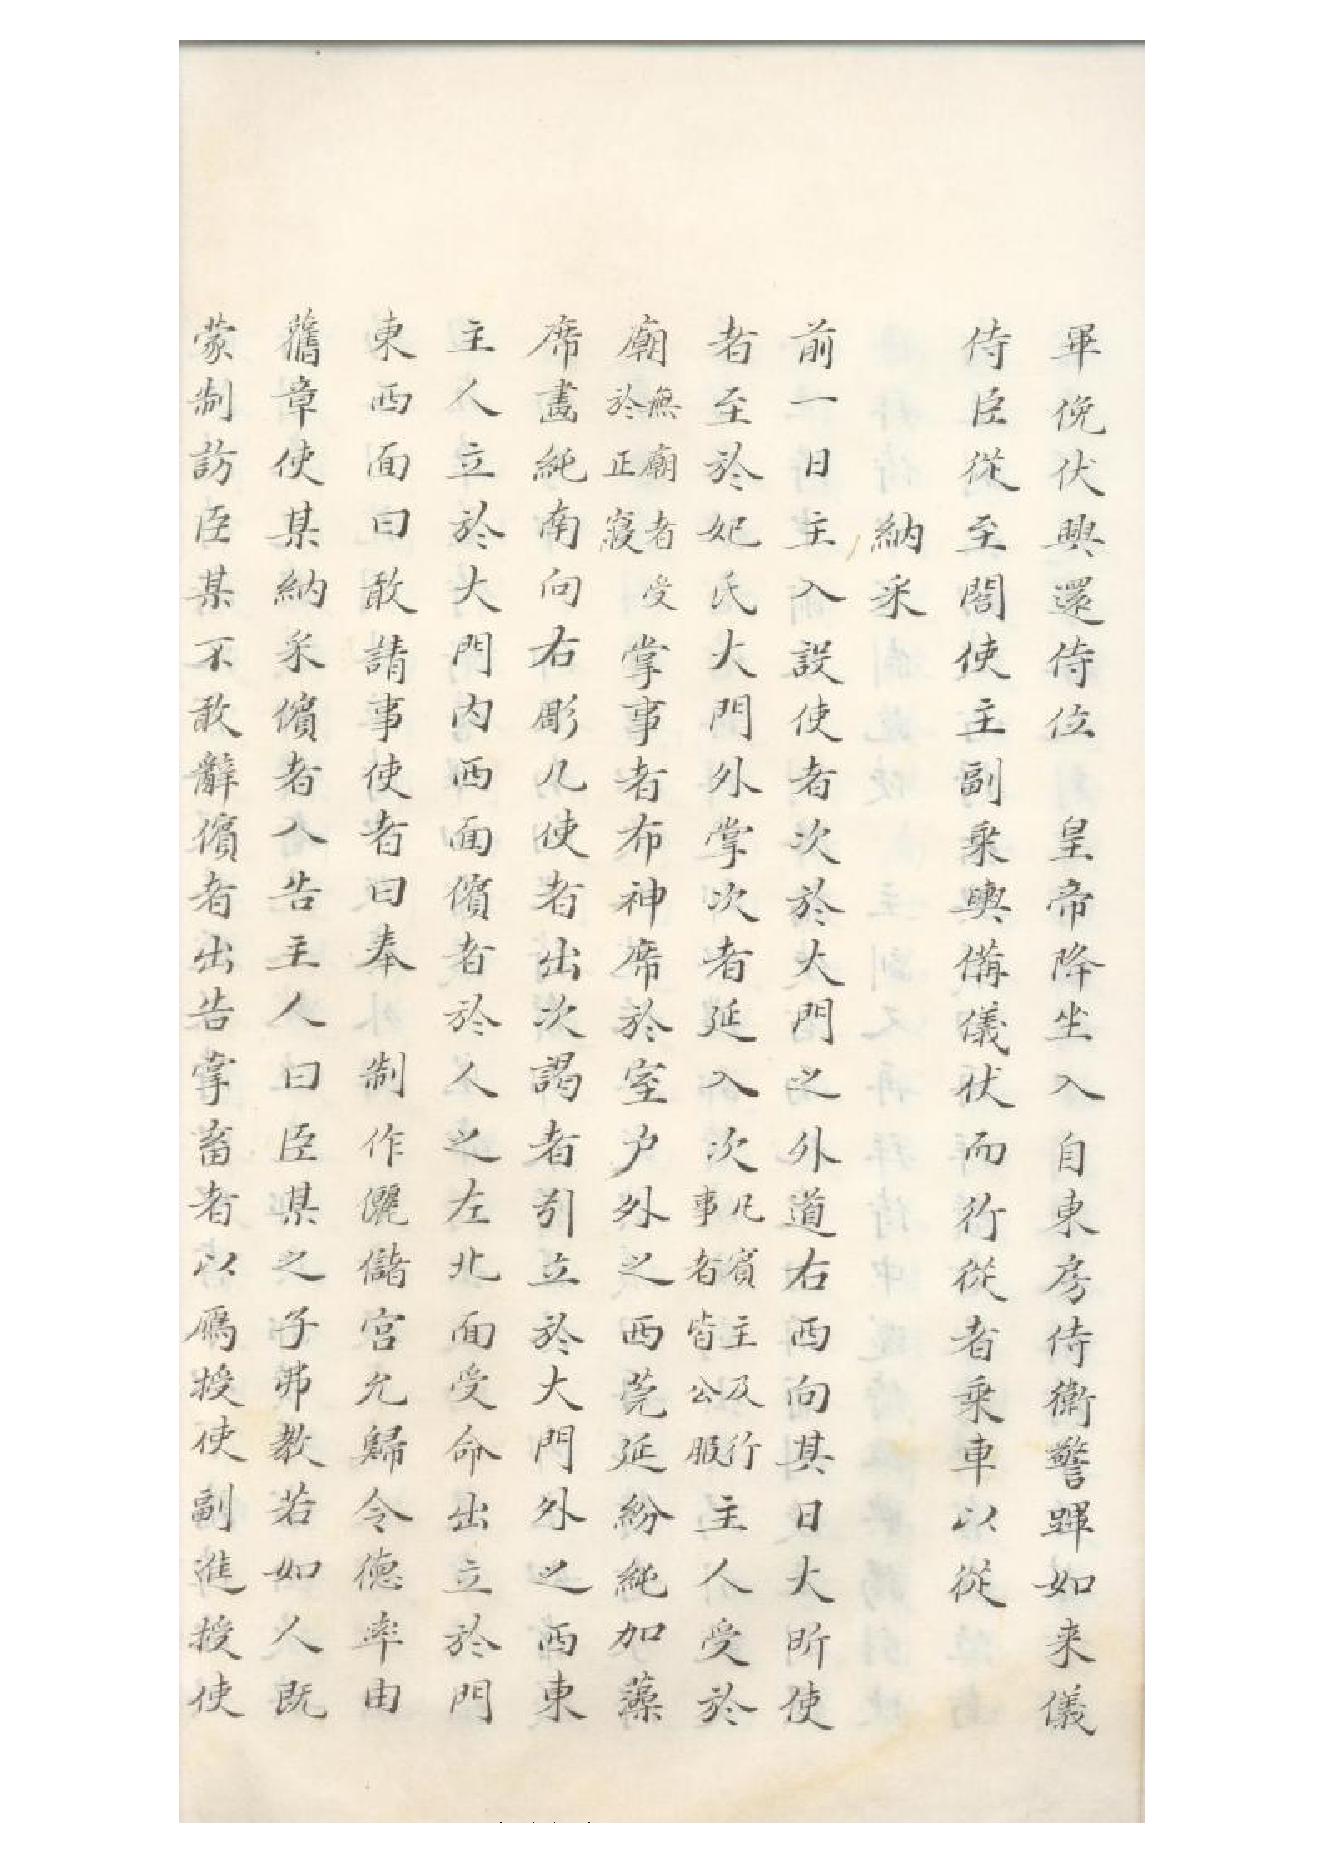 畢俛伏興還侍位　皇帝降坐入自東房侍衛警蹕如来儀
侍臣從至閤使主副乘輿備儀状而行從者乘車以從
納采
前一日主入設使者次於大門之外道右西向其日大昕使
者至於妃氏大門外掌次者延入次凡賓主及行事者皆公服主人受於
廟無廟者受於正寢掌事者布神席於室户外之西莞延紛純加藻
席畫純南向右彫几使者出次謁者引立於大門外之西東
主人立於大門内西面儐者於人之左北面受命出立於門
東西面曰敢請事使者曰奉　制作儷儲宮允歸令德率由
舊章使某納采儐者入告主人曰臣某之子弗教若如人既
蒙制訪臣某不敢辭儐者出告掌畜者以鴈授使副進授使